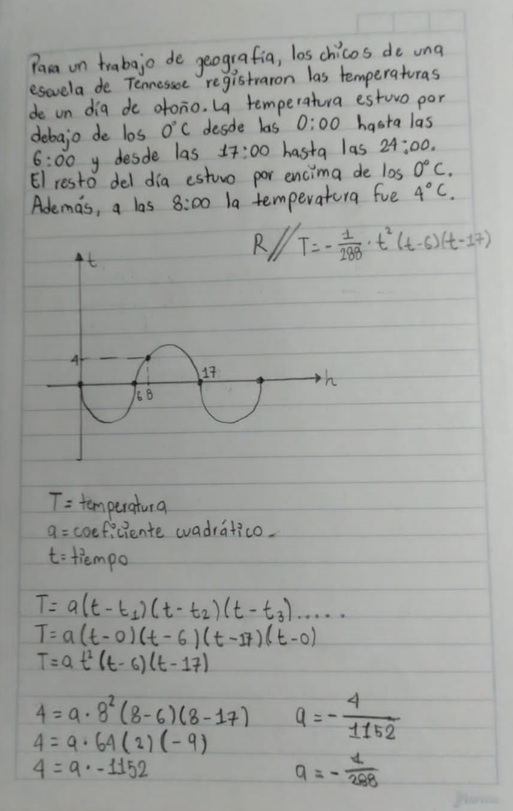 Para un trabajo de geografía, los chicos de una
escuela de Tennessee registraron las temperaturas
de un día de otoño. La temperatura estuvo por
debajo de los 0°C desde las 0:00 hasta las
6:00 y desde las 17:00 hasta las 24:00.
El resto del día estuvo por encima de los 0°C.
Además, a las 8:00 la temperatura fue 4°C.
R// T=-1/288·t²(t-6)(t-17)
t
4
17
h
6 8
T=temperatura
a=coeficiente cuadrático.
t=tiempo
T=a(t-t₁)(t-t₂)(t-t₃).....
T=a(t-0)(t-6)(t-17)(t-0)
T=a t²(t-6)(t-17)
4=a·8²(8-6)(8-17) a=-4/1152
4=a·64(2)(-9)
4=a·-1152 a=-1/288